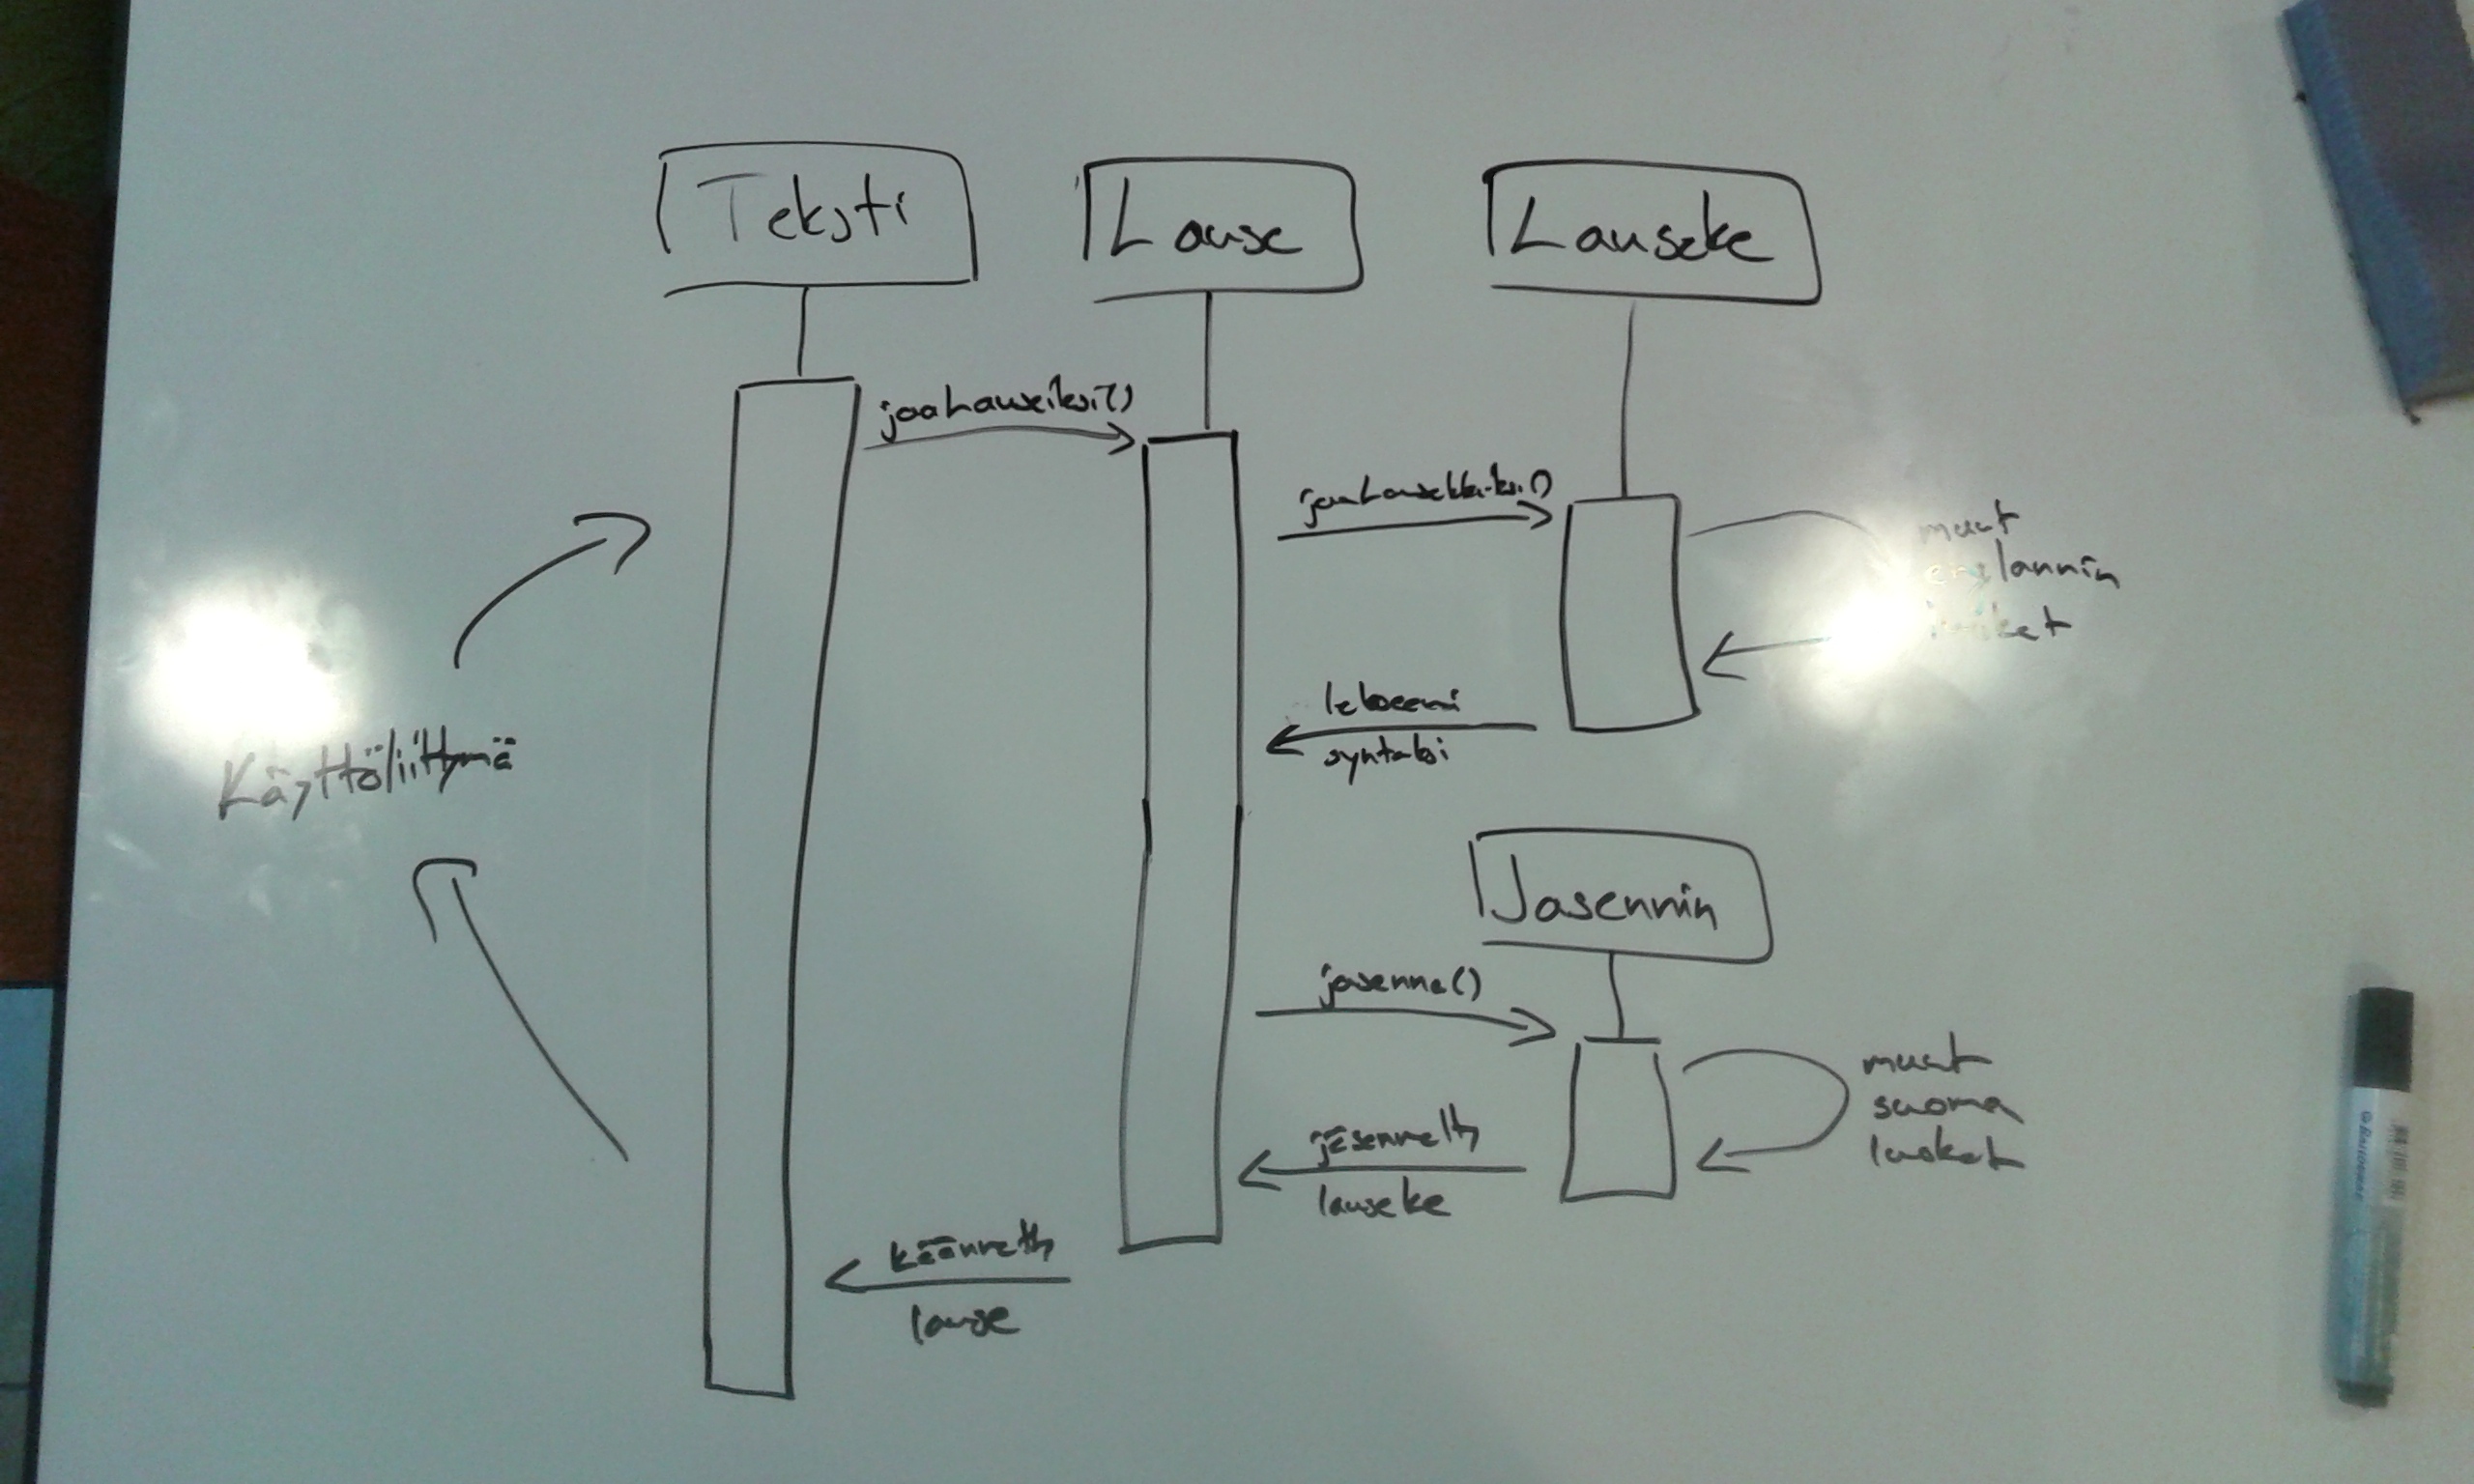 Teksti
Lause
Lauseke
jaaLauseiksi()
jaaLausekkeiksi()
muut
englannin
luokat
lekseemi
syntaksi
Käyttöliittymä
Jasennin
jasenna()
muut
suoma
luokat
jäsennelty
lauseke
käännetty
lause